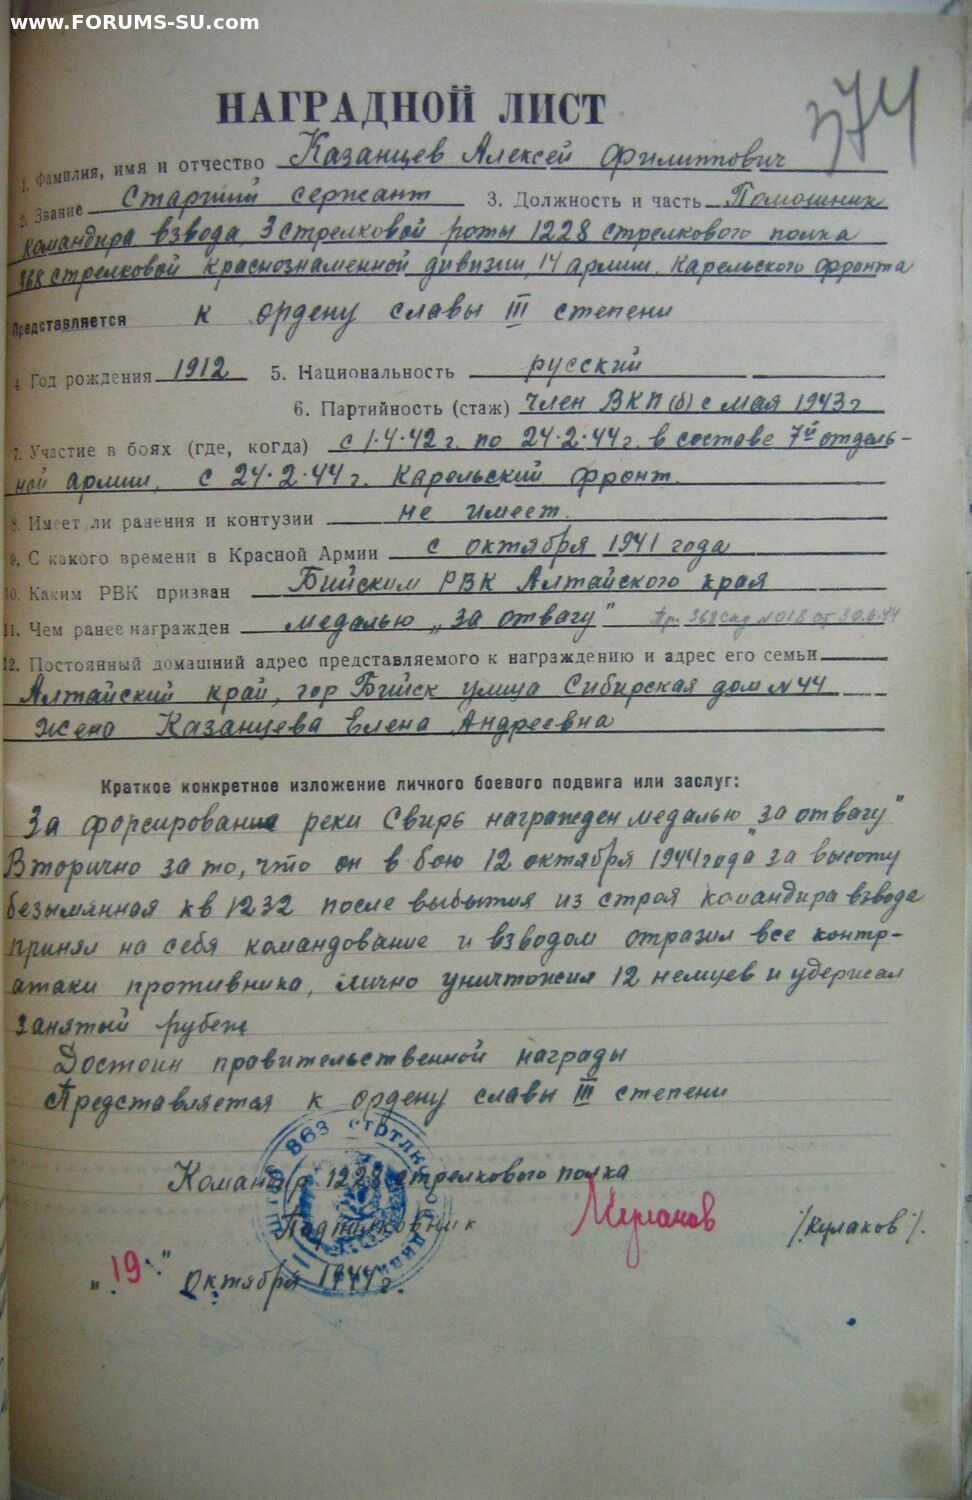 www.FORUMS-SU.com
374
НАГРАДНОЙ ЛИСТ
1. Фамилия, имя и отчество Казанцев Алексей Филиппович
2. Звание Старший сержант 3. Должность и часть Помошник
командира взвода, 3 стрелковой роты 1228 стрелкового полка
368 стрелковой краснознаменной дивизии, 14 армии, Карельского фронта
Представляется к ордену славы III степени
4. Год рождения 1912 5. Национальность русский
6. Партийность (стаж) член ВКП(б) с мая 1943г
7. Участие в боях (где, когда) с 1.4.42г. по 24.2.44г. в составе 7й отдель-
ной армии, с 24.2.44г. Карельский фронт.
8. Имеет ли ранения и контузии не имеет.
9. С какого времени в Красной Армии с октября 1941 года
10. Каким РВК призван Бийским РВК Алтайского края
11. Чем ранее награжден медалью „за отвагу" Пр. 368 сд №018 от 30.6.44
12. Постоянный домашний адрес представляемого к награждению и адрес его семьи
Алтайский край, гор Бийск улица Сибирская дом №44
Жена Казанцева Елена Андреевна
Краткое конкретное изложение личного боевого подвига или заслуг:
За форсирование реки Свирь награжден медалью „за отвагу"
Вторично за то, что он в бою 12 октября 1944 года за высоту
безымянная кв 1232 после выбытия из строя командира взвода
принял на себя командование и взводом отразил все контр-
атаки противника, лично уничтожил 12 немцев и удержал
занятый рубеж
Достоин правительственной награды
Представляется к ордену славы III степени
Командир 1228 стрелкового полка
Подполковник /Кулаков/.
„19" Октября 1944г.